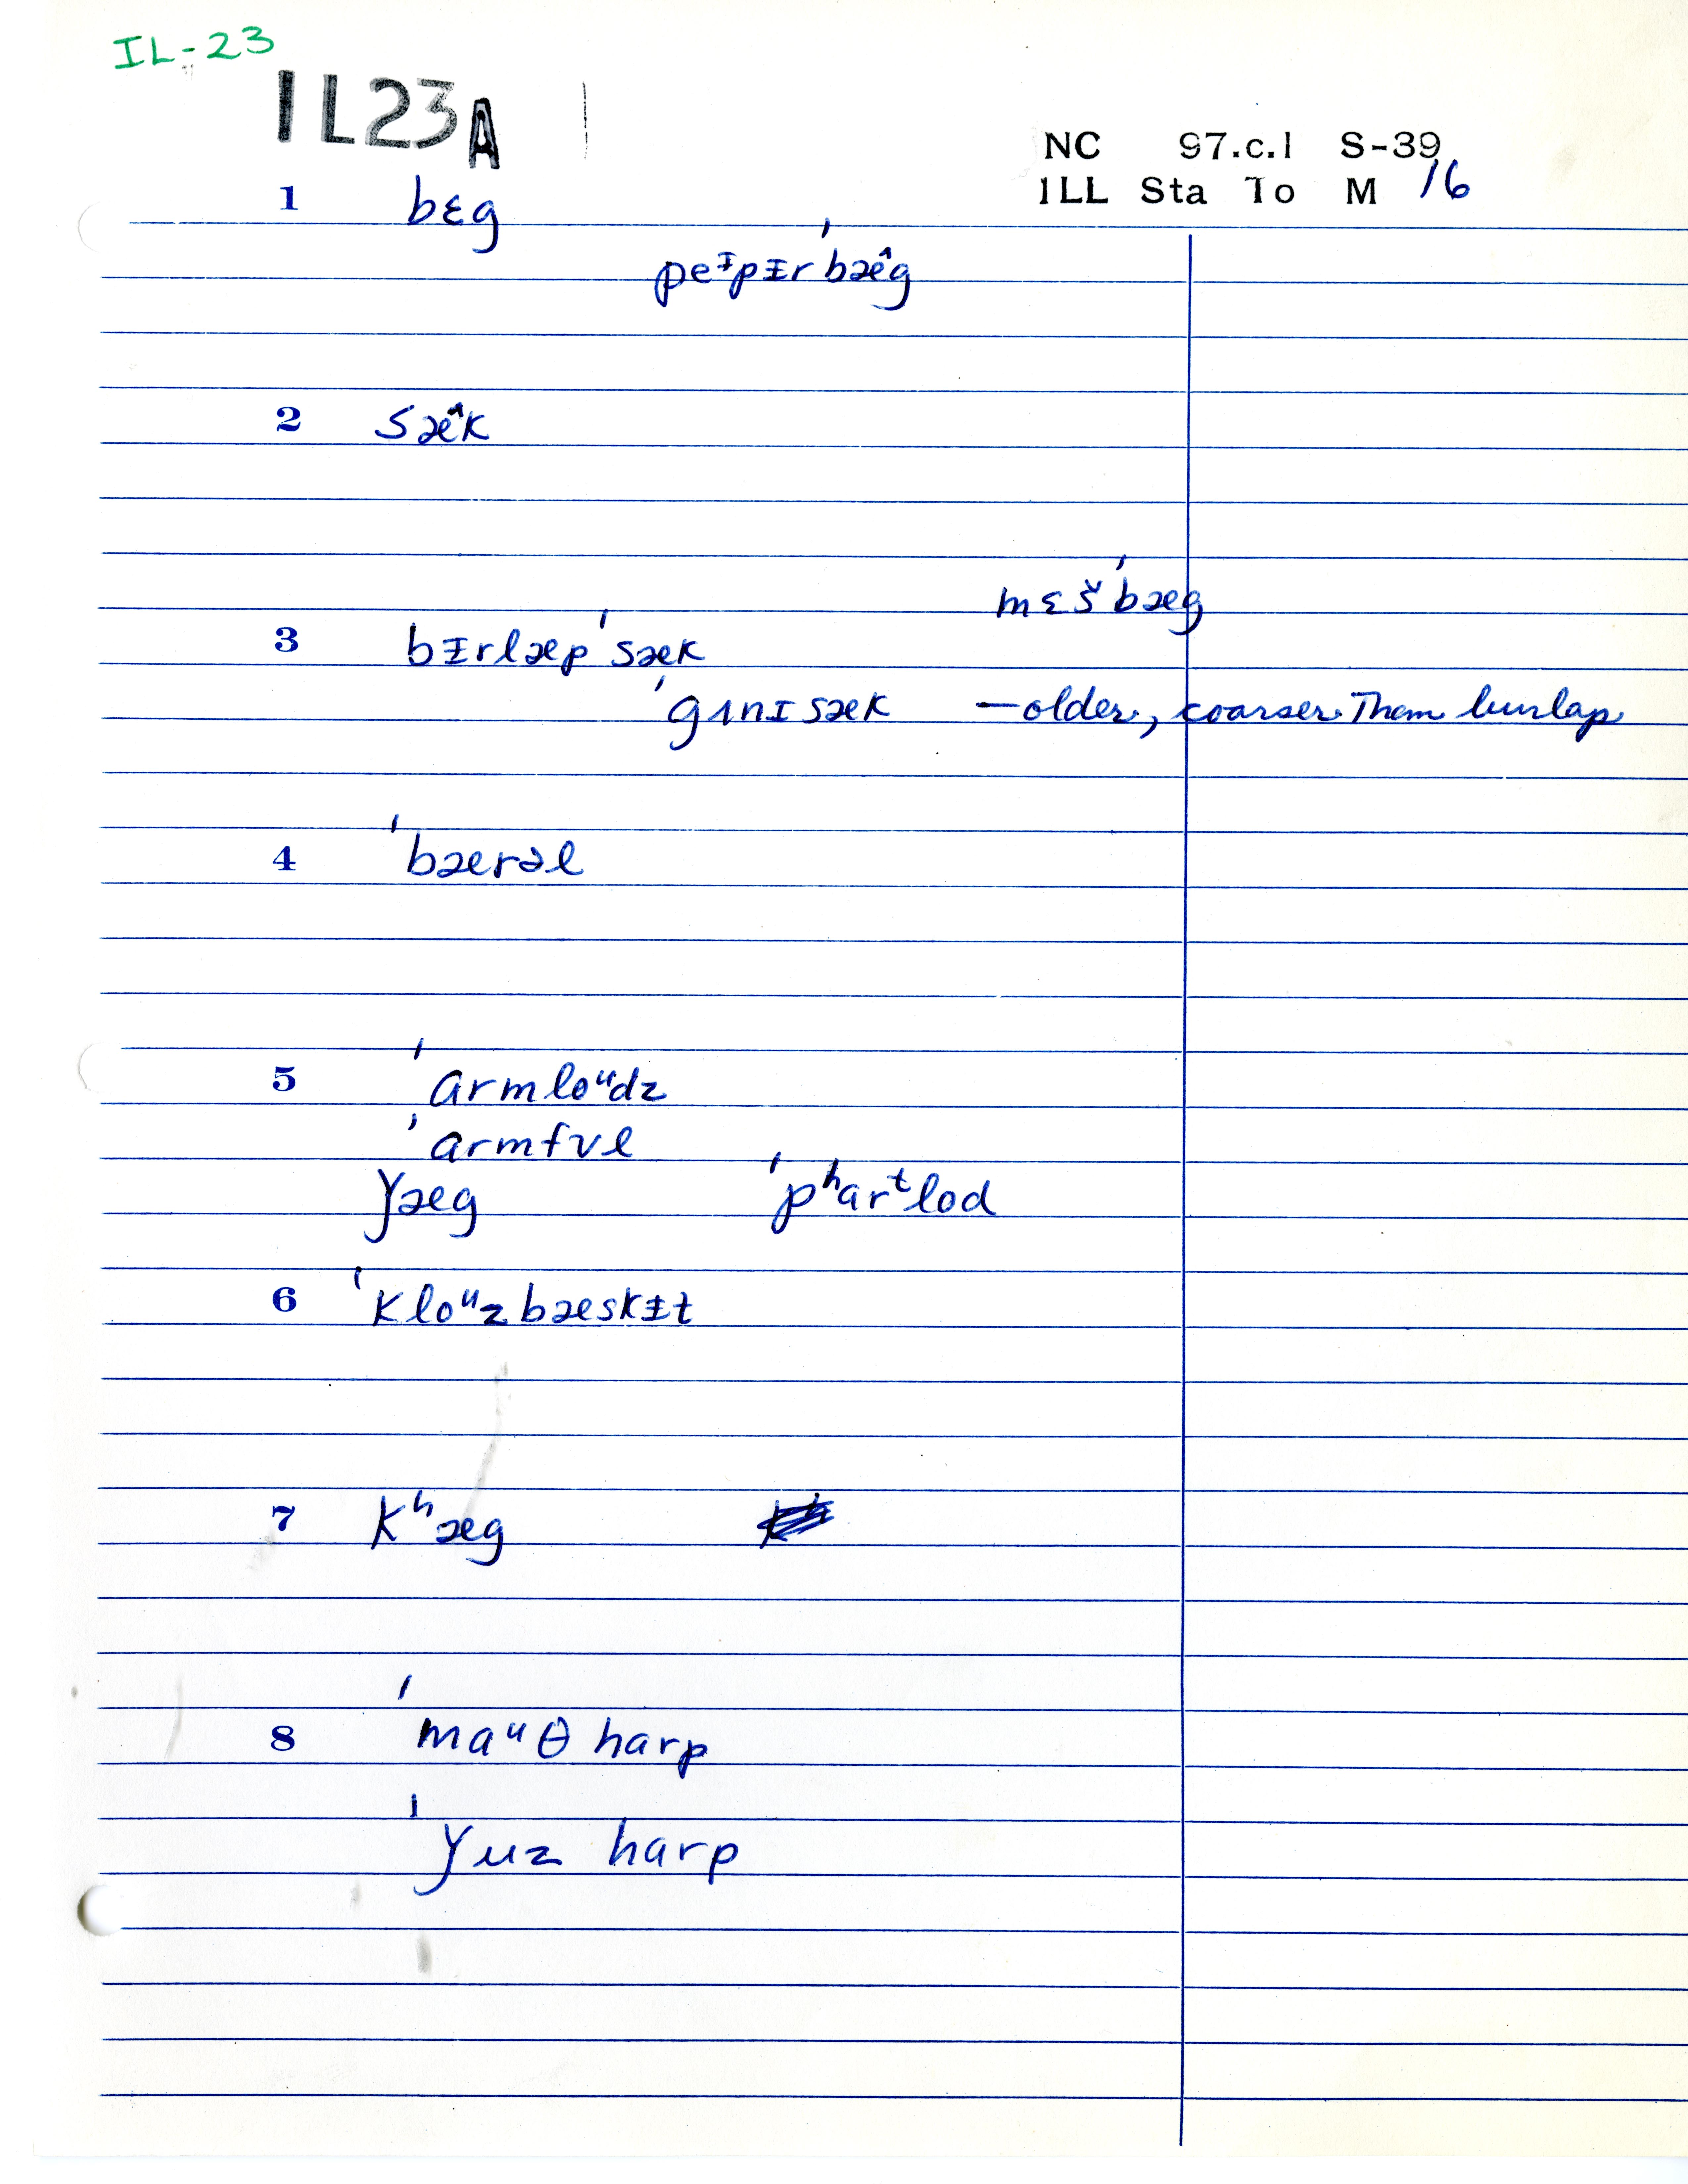 IL-23
IL23A
NC 97.c.1 S-39
ILL Sta To M 16
1 bɛg
peᶦpɪr ˈbæ^g
2 sæ^k
mɛš ˈbæg
3 bɪrlæp ˈsæk
ˈgʌnɪ sæk — older, coarser than burlap
4 ˈbærəl
5 ˈarmloᵘdz
ˈarmfʊl
ǰæg ˈpʰarᵗlod
6 ˈkloᵘz bæskɪt
7 kʰæg
8 ˈmaᵘθ harp
ˈǰuz harp